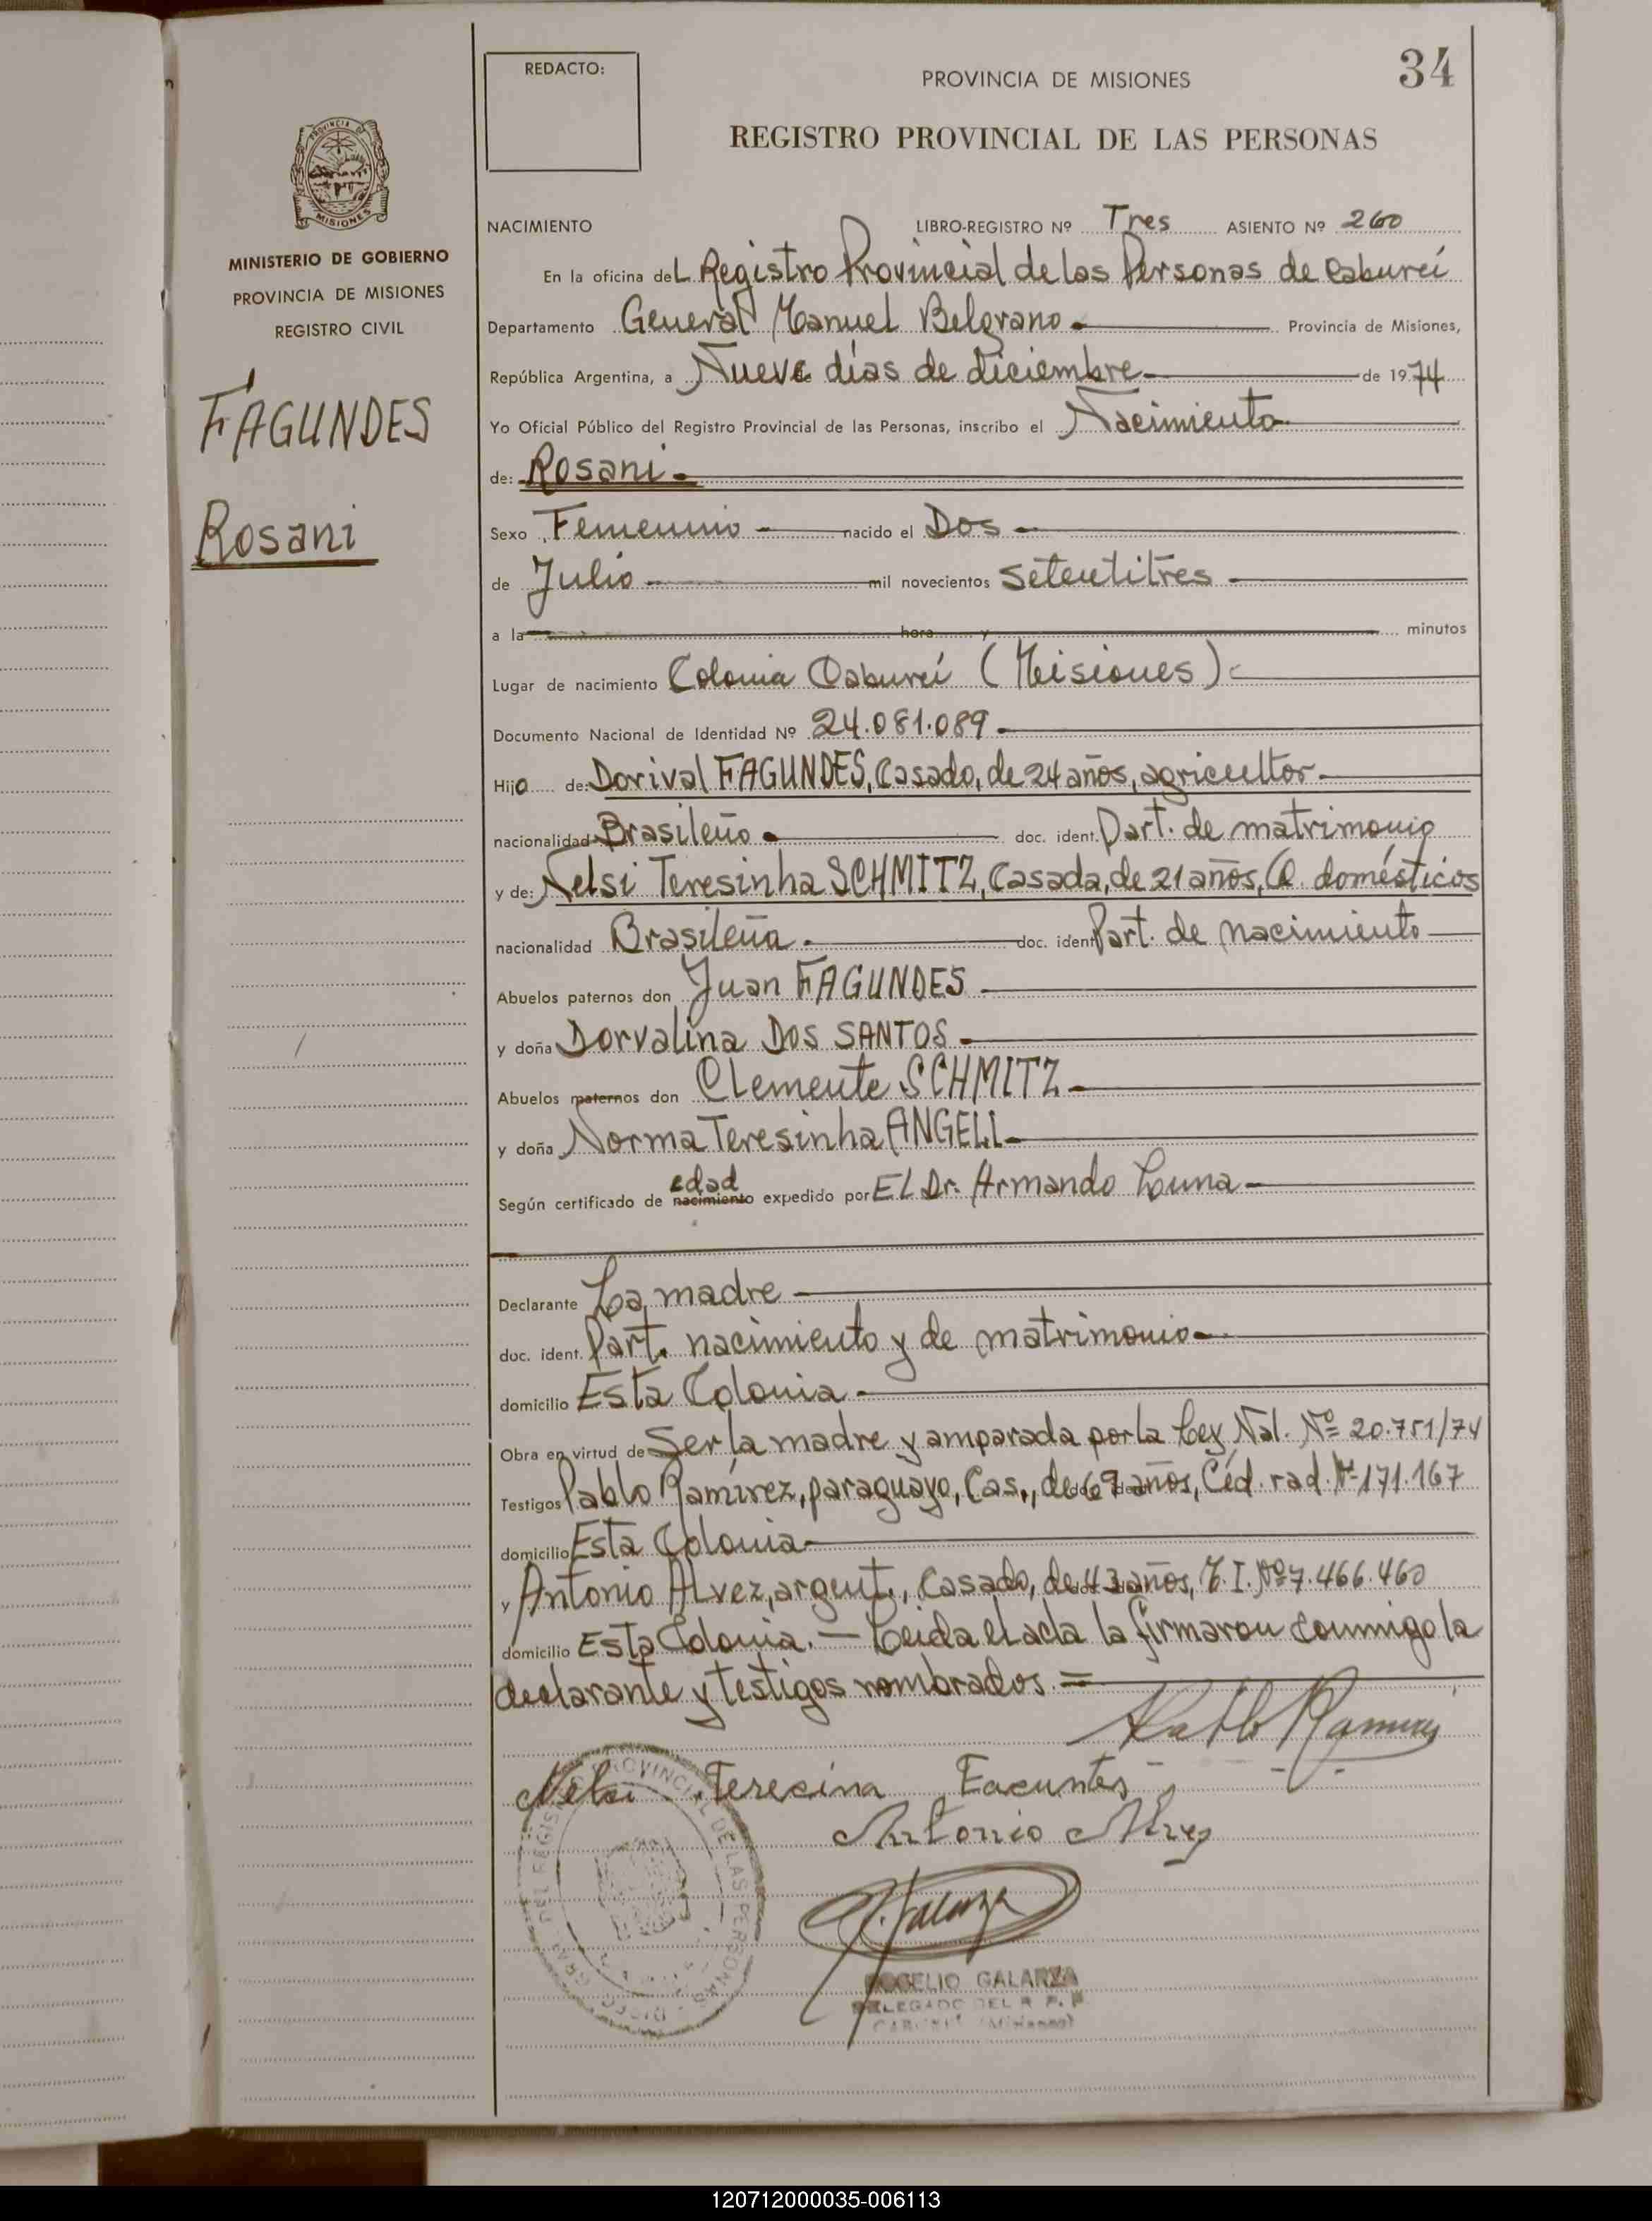 34
REDACTO:
PROVINCIA DE MISIONES
REGISTRO PROVINCIAL DE LAS PERSONAS
PROVINCIA DE
MISIONES
MINISTERIO DE GOBIERNO
PROVINCIA DE MISIONES
REGISTRO CIVIL
FAGUNDES
Rosani
NACIMIENTO LIBRO-REGISTRO Nº Tres ASIENTO Nº 260
En la oficina deL Registro Provincial de las Personas de Caburei
Departamento General Manuel Belgrano.— Provincia de Misiones,
República Argentina, a Nueve días de diciembre— de 1974
Yo Oficial Público del Registro Provincial de las Personas, inscribo el Nacimiento
de: Rosani.—
Sexo Femenino — nacido el Dos —
de Julio — mil novecientos setentitres —
a la hora y minutos
Lugar de nacimiento Colonia Caburei (Misiones).—
Documento Nacional de Identidad Nº 24.081.089 —
Hija de: Dorival FAGUNDES, Casado, de 24 años, agricultor.—
nacionalidad Brasileño.— doc. ident. Part. de matrimonio
y de: Nelsi Teresinha SCHMITZ, Casada, de 21 años, Q. domésticos
nacionalidad Brasileña.— doc. ident. Part. de nacimiento—
Abuelos paternos don Juan FAGUNDES —
y doña Dorvalina DOS SANTOS.—
Abuelos maternos don Clemente SCHMITZ.—
y doña Norma Teresinha ANGELI.—
edad
Según certificado de nacimiento expedido por El Dr. Armando Luna—
Declarante La madre —
doc. ident. Part. nacimiento y de matrimonio—
domicilio Esta Colonia.—
Obra en virtud de Ser la madre y amparada por la Ley Nal. Nº 20.751/74
Testigos Pablo Ramírez, paraguayo, Cas., de 69 años, Céd. rad. Nº 171.167
domicilio Esta Colonia—
y Antonio Alvez, argent., Casado, de 43 años, M.I. Nº 7.466.460
domicilio Esta Colonia.— Leida el acta la firmaron conmigo la
declarante y testigos nombrados.=
Pablo Ramirez
Nelsi Terecina Facuntes
Antonio Alvez
DIRECC GRAL DEL REGISTRO PROVINCIAL DE LAS PERSONAS
ROGELIO GALARZA
DELEGADO DEL R. P. P.
CABUREI (Misiones)
120712000035-006113